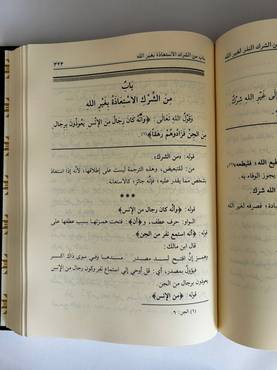 باب من الشرك الاستعاذة بغير الله
٣٢٣
بَابُ
مِنَ الشِّرْكِ الاسْتِعَاذَةُ بِغَيْرِ اللهِ
وَقَوْلُ اللهِ تَعَالَى: ﴿وَأَنَّهُ كَانَ رِجَالٌ مِنَ الإِنْسِ يَعُوذُونَ بِرِجَالٍ
مِنَ الجِنِّ فَزَادُوهُمْ رَهَقًا﴾(١)
قوله: «من الشرك»
من: للتبعيض، وهذه الترجمة ليست على إطلاقها، لأنه إذا استعاذ
بشخص مما يقدر عليه؛ فإنه جائز؛ كالاستعانة.
***
قوله: ﴿وأنه كان رجال من الإنس﴾
الواو: حرف عطف، و﴿أن﴾: فتحت همزتها بسبب عطفها على
قوله: ﴿أنه استمع نفر من الجن﴾
قال ابن مالك:
وهمز إن افتح لسد مصدر مسدها وفي سوى ذاك اكسر
فيؤول بمصدر، أي: قل أوحي إلي استماع نفر وكون رجال من
الإنس يعوذون برجال من الجن.
قوله: ﴿من الإنس﴾
(١) الجن: ٦.
باب من الشرك النذر لغير الله